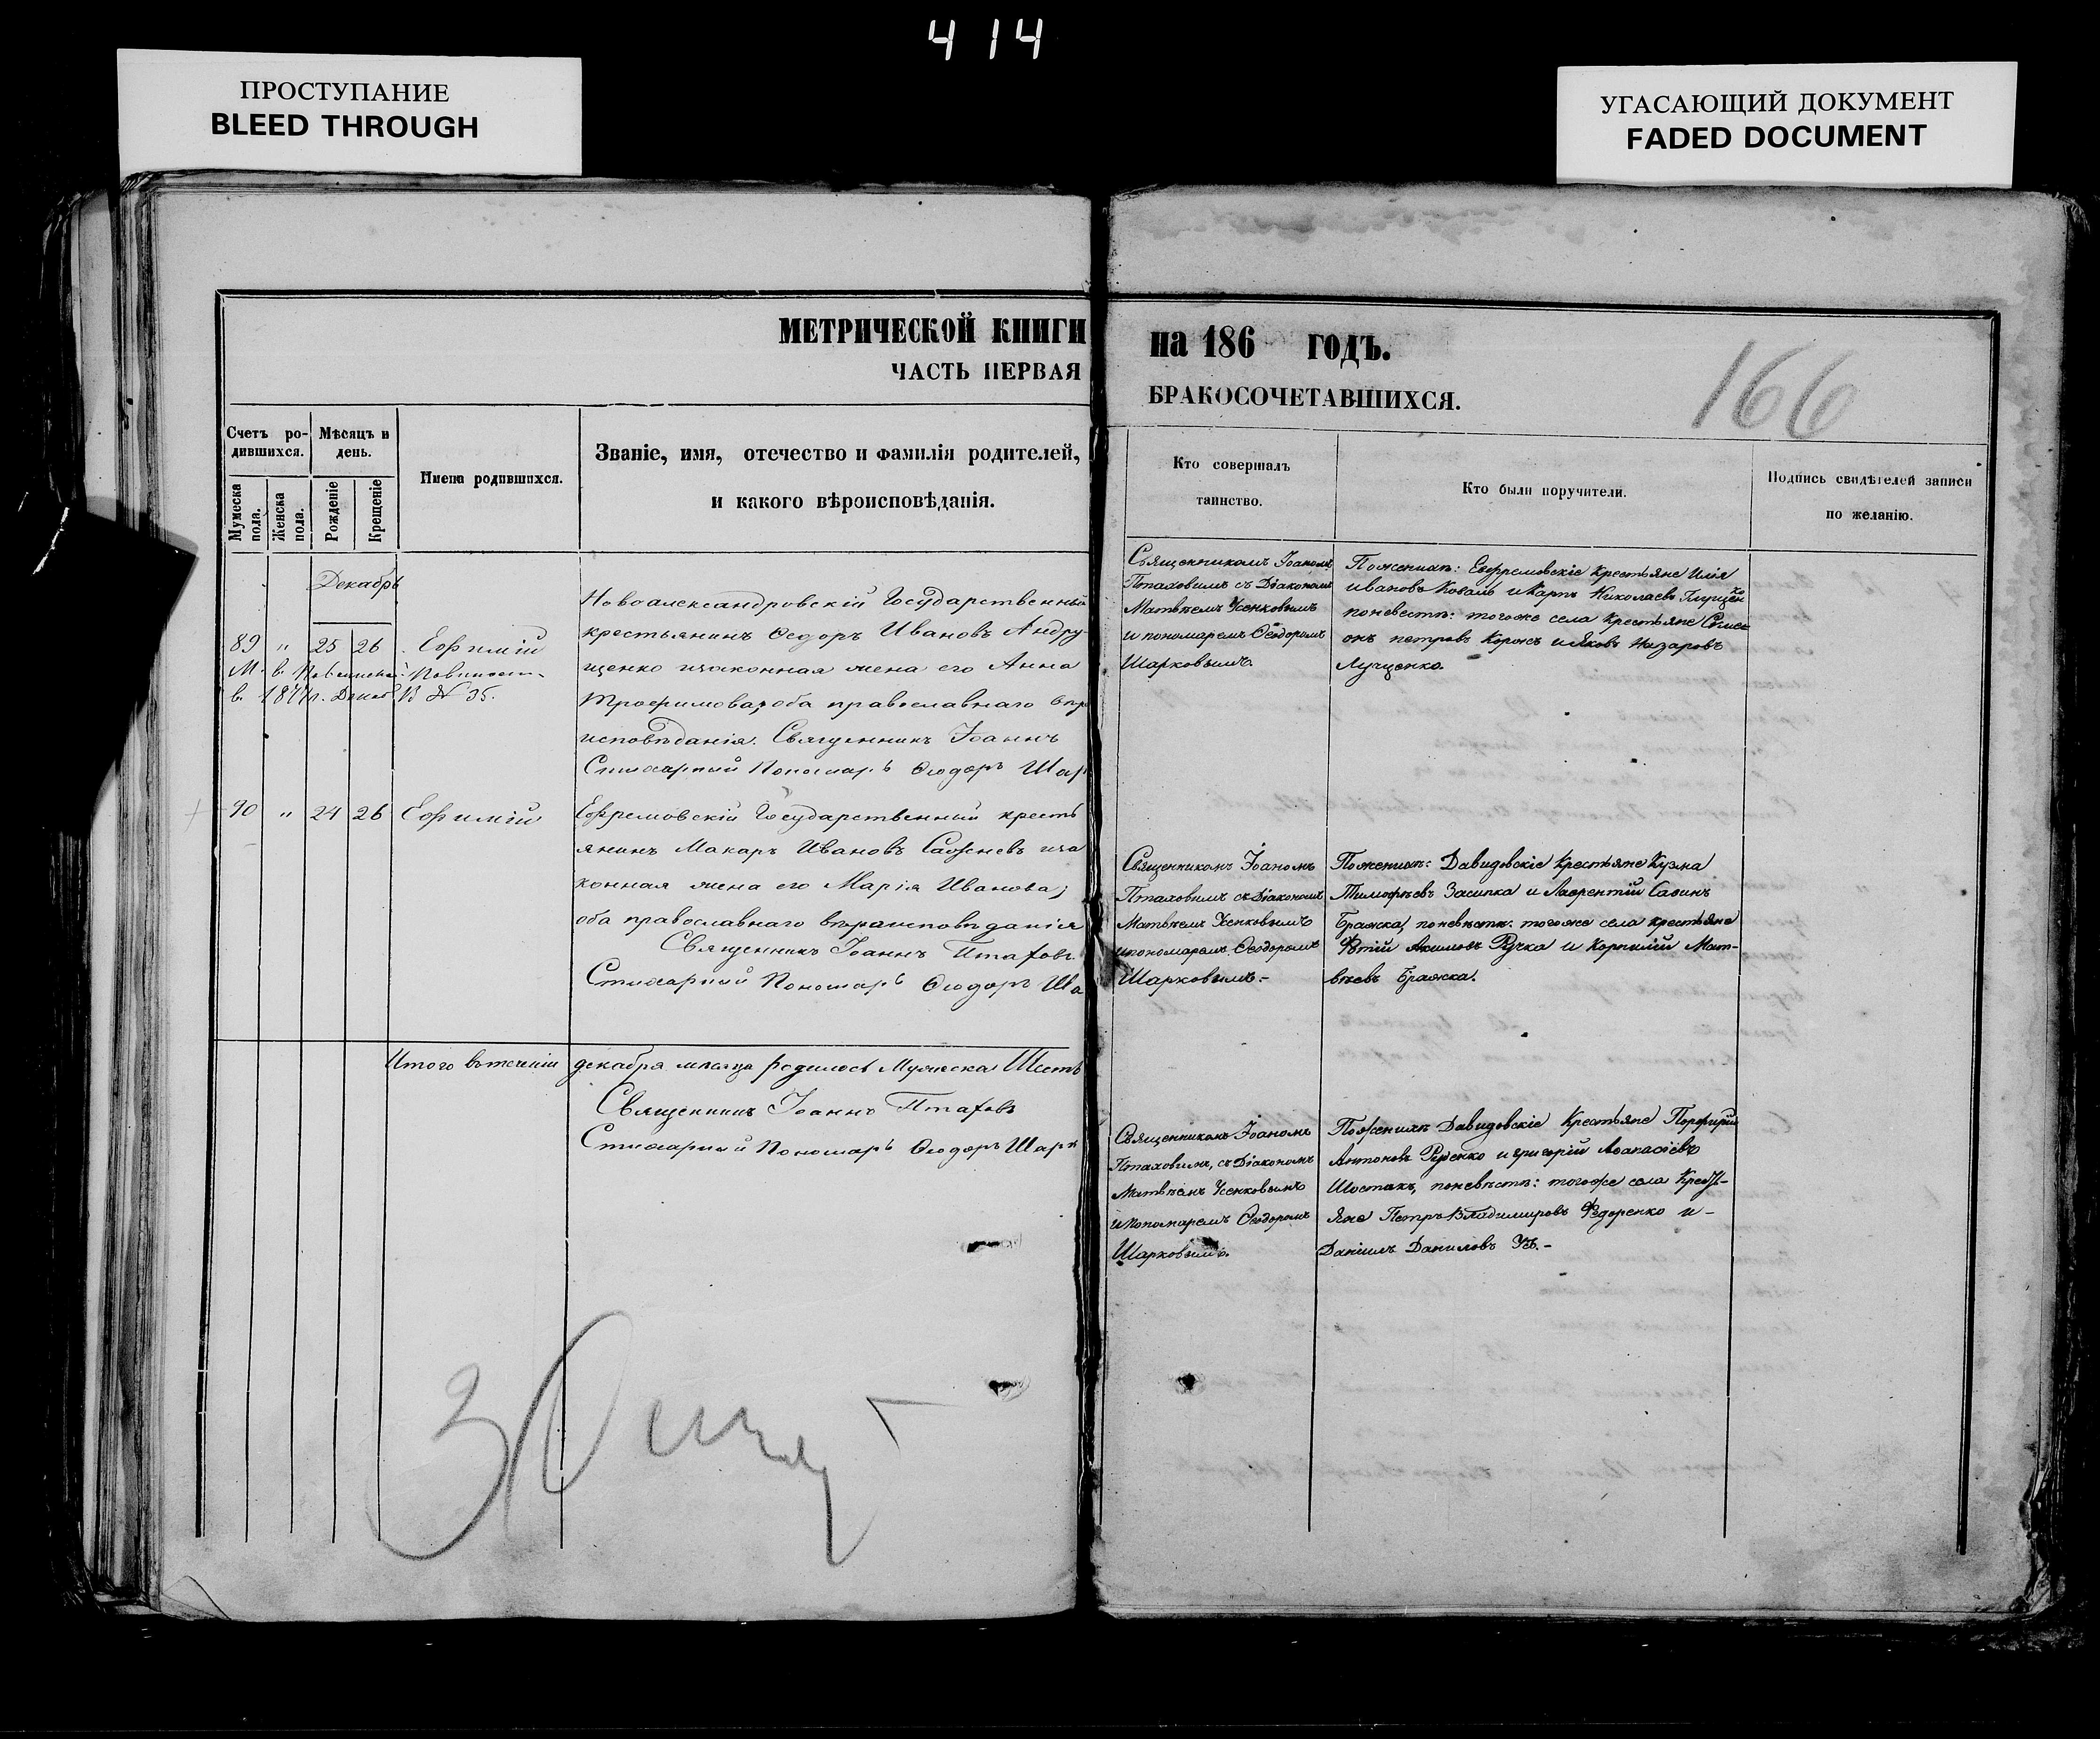 414
ПРОСТУПАНИЕ
BLEED THROUGH
УГАСАЮЩИЙ ДОКУМЕНТ
FADED DOCUMENT
МЕТРИЧЕСКОЙ КНИГИ
ЧАСТЬ ПЕРВАЯ
Счетъ ро-
дившихся.
Мѣсяцъ и
день.
Мужеска
пола.
Женска
пола.
Рожденіе
Крещеніе
Имена родившихся.
Званіе, имя, отечество и фамилія родителей,
и какого вѣроисповѣданія.
Декабрь
Новоалександровскій Государственный
89 " 25 26 Еѳфимій крестьянинъ Ѳеодоръ Ивановъ Андру-
щенко изаконная жена его Анна
Трофимова, оба православнаго вѣро
исповѣданія. Священникъ Іоаннъ
Стихарный Пономарь Ѳеодоръ Шар
в. 187 г. № 35.
90 " 24 26 Еѳфимій Ефремовскій Государственный кресть
янинъ Макаръ Ивановъ иза
конная жена его Марія Иванова;
оба православнаго вѣроисповѣданія
Священникъ Іоаннъ Птаховъ
Стихарный Пономарь Ѳеодоръ Ша
Итого втеченіи декабря мѣсяца родилось Мужеска Шесть
Священникъ Іоаннъ Птаховъ
Стихарный Пономарь Ѳеодоръ Шарк
на 186 годъ.
БРАКОСОЧЕТАВШИХСЯ.
166
Кто совершалъ
таинство.
Кто были поручители.
Подпись свидѣтелей записи
по желанію.
Священникомъ Іоаномъ
Птаховымъ съ Діакономъ
Матвѣемъ Усенковымъ
и пономаремъ Ѳеодоромъ
Шарковымъ.
Поженихѣ: Ефремовскіе Крестьяне Илія
Ивановъ Коваль и Карпъ Николаевъ
поневестѣ: тогоже села Крестьяне Симе
онъ петровъ Коржъ и Яковъ Назаровъ
Лущенко.
Священникомъ Іоаномъ
Птаховымъ съ Діакономъ
Матвѣемъ Усенковымъ
ипономаремъ Ѳеодоромъ
Шарковымъ.-
Поженихѣ: Давидовскіе Крестьяне Кузма
Тимофѣевъ Засипка и Лаврентій Савинъ
Бражка, поневѣстѣ: тогоже села крестьяне
Акимовъ Ручка и Корнилій Мат-
вѣевъ Бражка.
Священникомъ Іоаномъ
Птаховымъ, съ Діакономъ
Матвѣемъ Усенковымъ
ипономаремъ Ѳеодоромъ
Шарковымъ.
Поженихѣ Давидовскіе Крестьяне Порфирій
Антоновъ Руденко и григорій Аѳанасіевъ
Шостакъ, поневѣстѣ: тогоже села Кресть-
яне Петръ Владимировъ Федоренко и -
Даніилъ Даниловъ